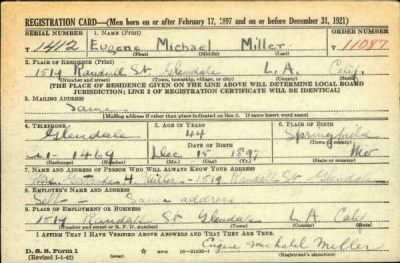 REGISTRATION CARD—(Men born on or after February 17, 1897 and on or before December 31, 1921)
SERIAL NUMBER 1. NAME (Print) ORDER NUMBER
T 1412 Eugene Michael Miller T 11087
(First) (Middle) (Last)
2. PLACE OF RESIDENCE (Print)
1519 Randall St. Glendale L.A. Calif.
(Number and street) (Town, township, village, or city) (County) (State)
[THE PLACE OF RESIDENCE GIVEN ON THE LINE ABOVE WILL DETERMINE LOCAL BOARD
JURISDICTION; LINE 2 OF REGISTRATION CERTIFICATE WILL BE IDENTICAL]
3. MAILING ADDRESS
Same
[Mailing address if other than place indicated on line 2. If same insert word same]
4. TELEPHONE 5. AGE IN YEARS 6. PLACE OF BIRTH
Glendale 44 Springfield
DATE OF BIRTH (Town or county)
1-1464 Dec 15 1897 Mo
(Exchange) (Number) (Mo.) (Day) (Yr.) (State or country)
7. NAME AND ADDRESS OF PERSON WHO WILL ALWAYS KNOW YOUR ADDRESS
Mrs. Miller - 1519 Randall St. Glendale
8. EMPLOYER'S NAME AND ADDRESS
Self - Same address
9. PLACE OF EMPLOYMENT OR BUSINESS
1519 Randall St Glendale L.A. Calif
(Number and street or R. F. D. number) (Town) (County) (State)
I AFFIRM THAT I HAVE VERIFIED ABOVE ANSWERS AND THAT THEY ARE TRUE.
D. S. S. Form 1 Eugene Michael Miller
(Revised 1-1-42) (over) (Registrant's signature)